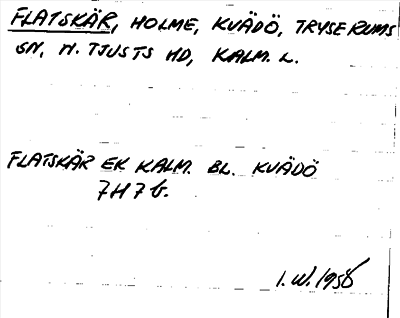 FLATSKÄR, HOLME, KVÄDÖ, TRYSERUMS
SN, N. TJUSTS HD, KALM. L.
FLATSKÄR EK KALM. BL. KVÄDÖ
7H7b.
I. W. 1958